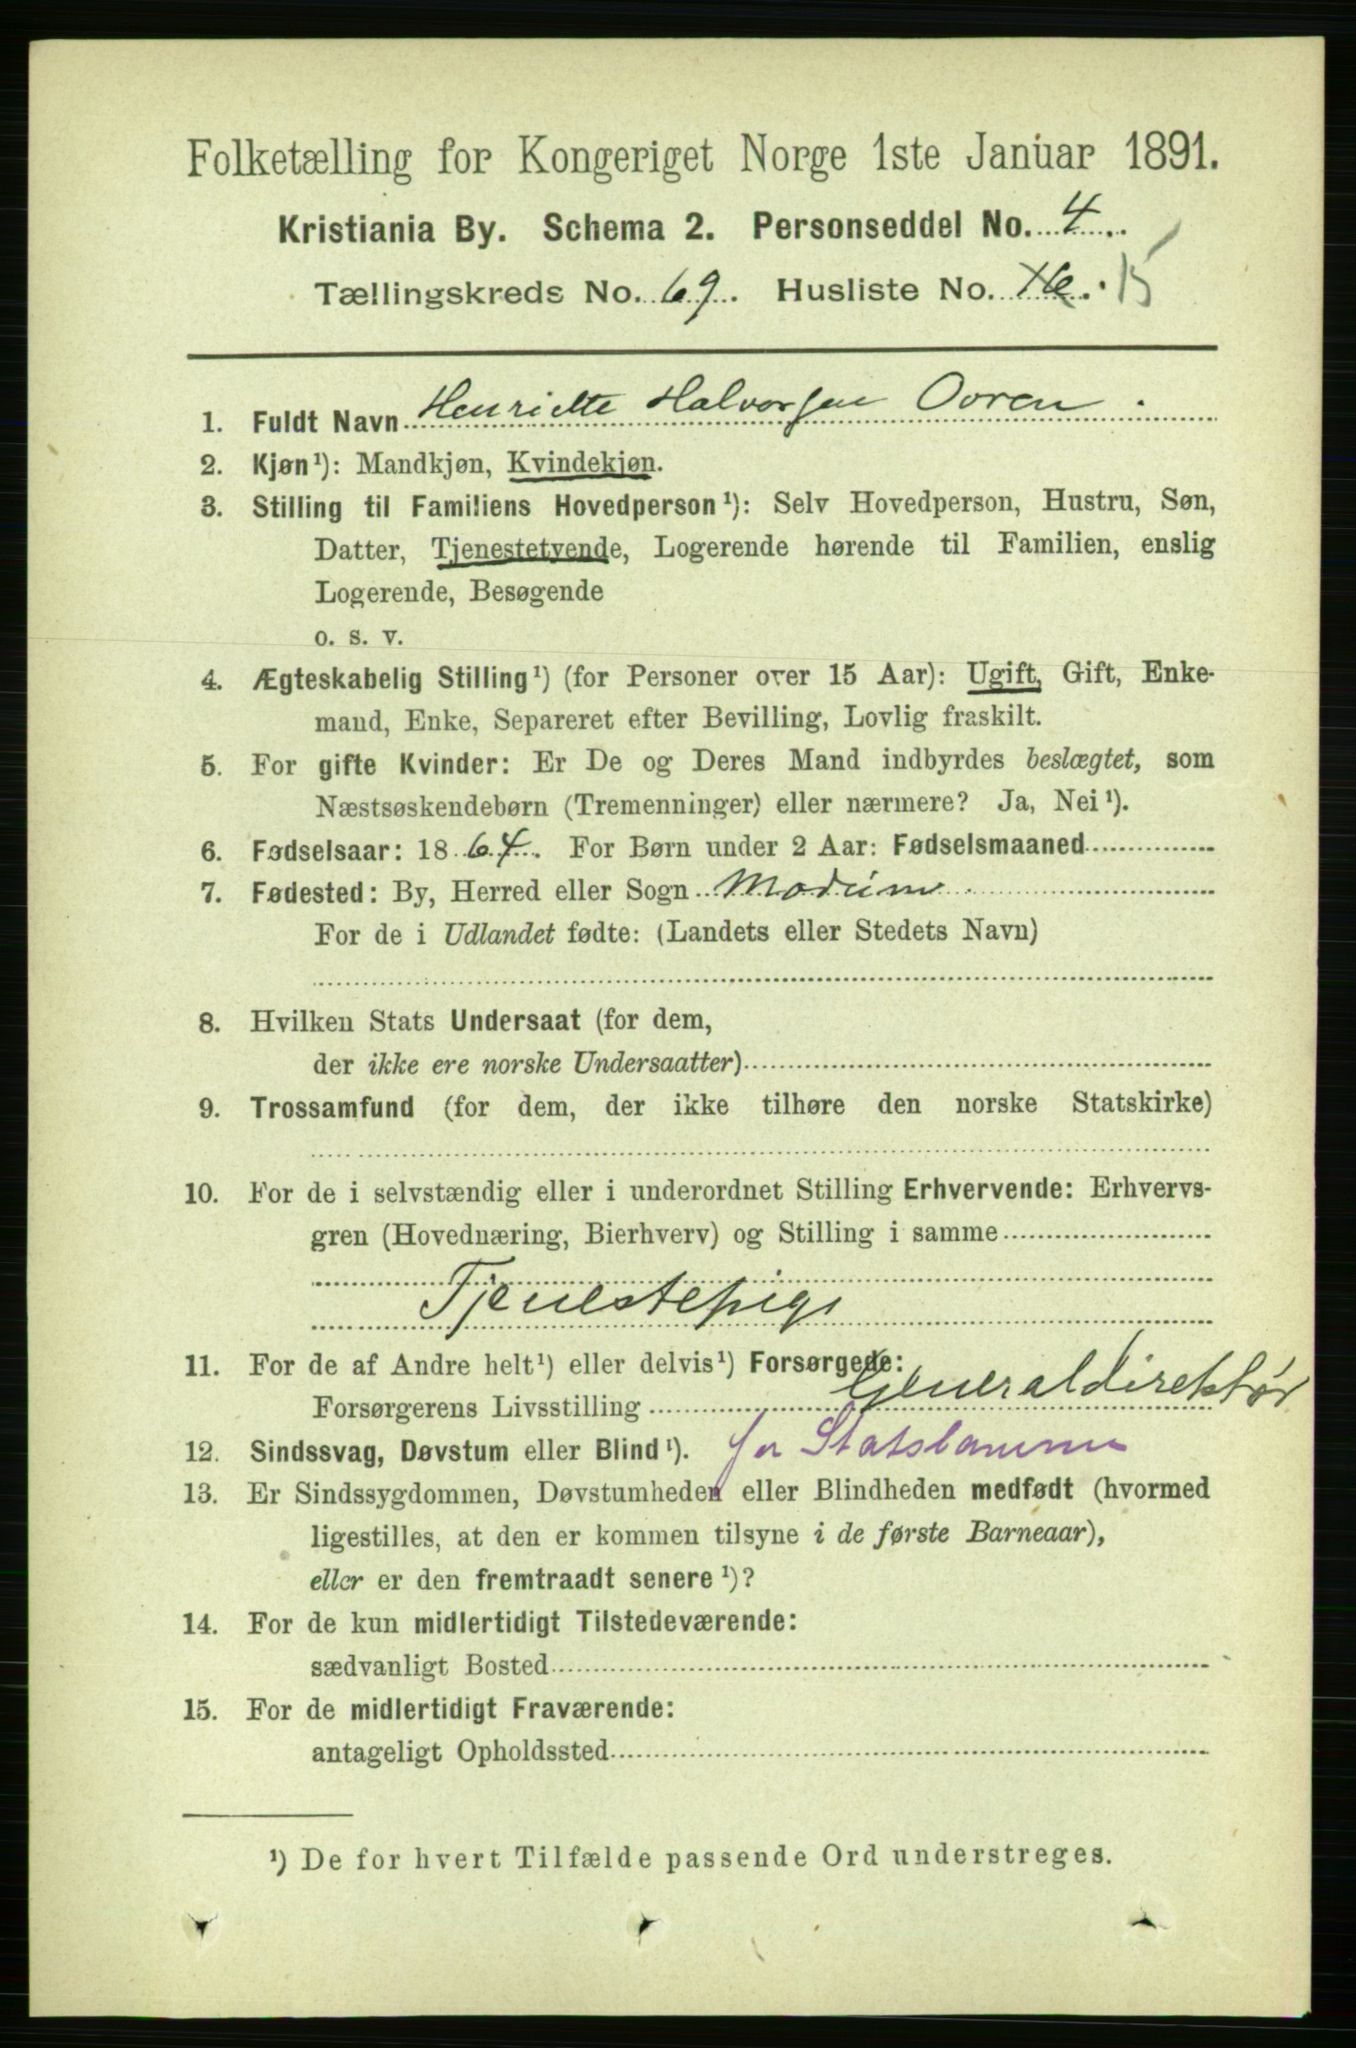 Folketælling for Kongeriget Norge 1ste Januar 1891.
Kristiania By. Schema 2. Personseddel No. 4.
Tællingskreds No. 69. Husliste No. 16. 15
1. Fuldt Navn Henriette Halvorsen Ovren.
2. Kjøn¹): Mandkjøn, Kvindekjøn.
3. Stilling til Familiens Hovedperson¹): Selv Hovedperson, Hustru, Søn,
Datter, Tjenestetyende, Logerende hørende til Familien, enslig
Logerende, Besøgende
o. s. v.
4. Ægteskabelig Stilling¹) (for Personer over 15 Aar): Ugift, Gift, Enke-
mand, Enke, Separeret efter Bevilling, Lovlig fraskilt.
5. For gifte Kvinder: Er De og Deres Mand indbyrdes beslægtet, som
Næstsøskendebørn (Tremenninger) eller nærmere? Ja, Nei¹).
6. Fødselsaar: 1864. For Børn under 2 Aar: Fødselsmaaned
7. Fødested: By, Herred eller Sogn Modum
For de i Udlandet fødte: (Landets eller Stedets Navn)
8. Hvilken Stats Undersaat (for dem,
der ikke ere norske Undersaatter)
9. Trossamfund (for dem, der ikke tilhøre den norske Statskirke)
10. For de i selvstændig eller i underordnet Stilling Erhvervende: Erhvervs-
gren (Hovednæring, Bierhverv) og Stilling i samme
Tjenestepige
11. For de af Andre helt¹) eller delvis¹) Forsørgede:
Forsørgerens Livsstilling Generaldirektør
12. Sindssvag, Døvstum eller Blind¹). for Statsbanerne
13. Er Sindssygdommen, Døvstumheden eller Blindheden medfødt (hvormed
ligestilles, at den er kommen tilsyne i de første Barneaar),
eller er den fremtraadt senere¹)?
14. For de kun midlertidigt Tilstedeværende:
sædvanligt Bosted
15. For de midlertidigt Fraværende:
antageligt Opholdssted
¹) De for hvert Tilfælde passende Ord understreges.